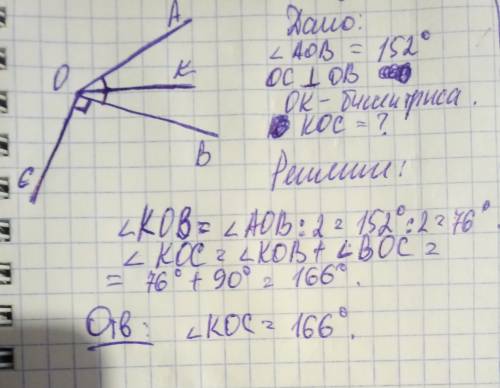 Дано:
∠AOB = 152°
OC ⊥ OB
OK - биссектриса.
KOC = ?
A
O
K
B
C
Решение:
∠KOB = ∠AOB : 2 = 152° : 2 = 76°.
∠KOC = ∠KOB + ∠BOC =
= 76° + 90° = 166°.
Отв: ∠KOC = 166°.